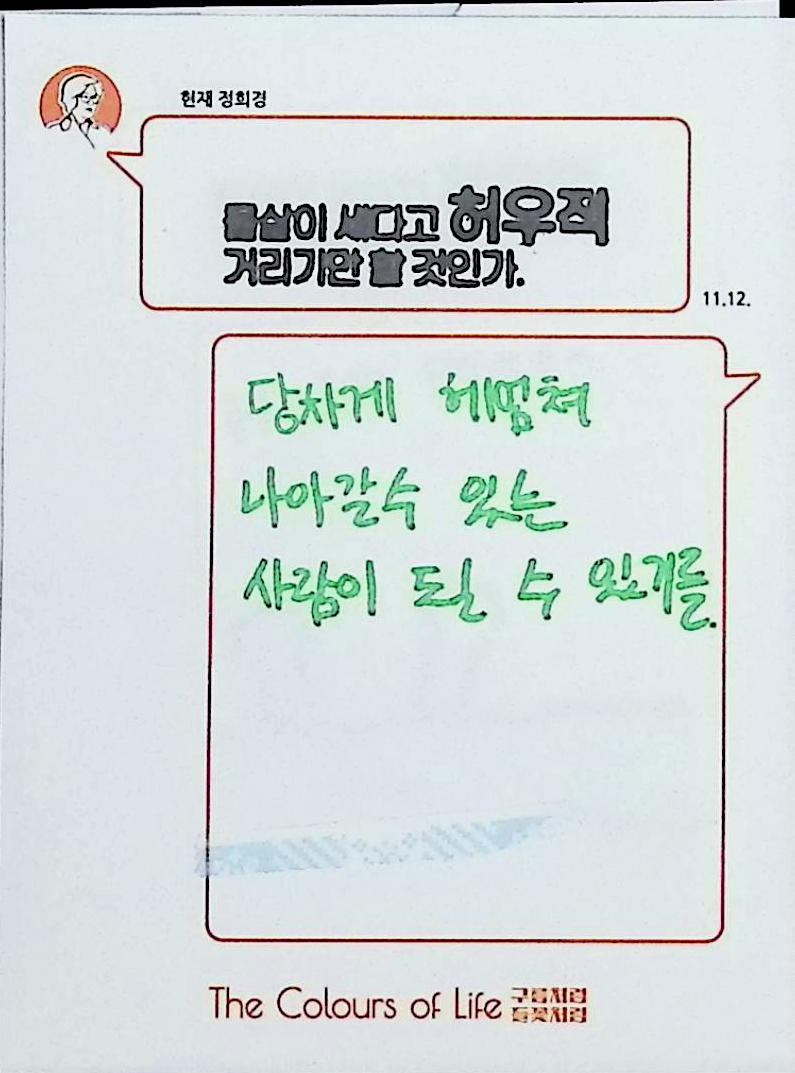 현재 정희경
물살이 세다고 허우적
거리기만 할 것인가.
11.12.
당차게 헤엄쳐
나아갈수 있는
사람이 되실 수 있기를.
The Colours of Life 구름처럼
들꽃처럼